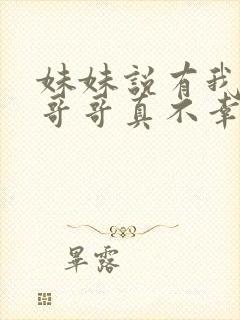 妹妹説有我
哥哥真不幸
畢露